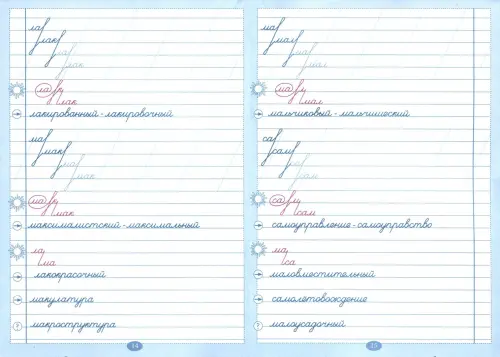 ла
лак
ла
лак
ла к
лак
лакированный - лакировочный
ма
мак
ма
мак
ма к
мак
максималистский - максимальный
ла
ма
лакокрасочный
макулатура
макроструктура
14
ма
мал
ма
мал
ма л
мал
мальчиковый - мальчишеский
са
сам
са
сам
са м
сам
самоуправление - самоуправство
ма
са
маловместительный
самолётовождение
малоусадочный
15